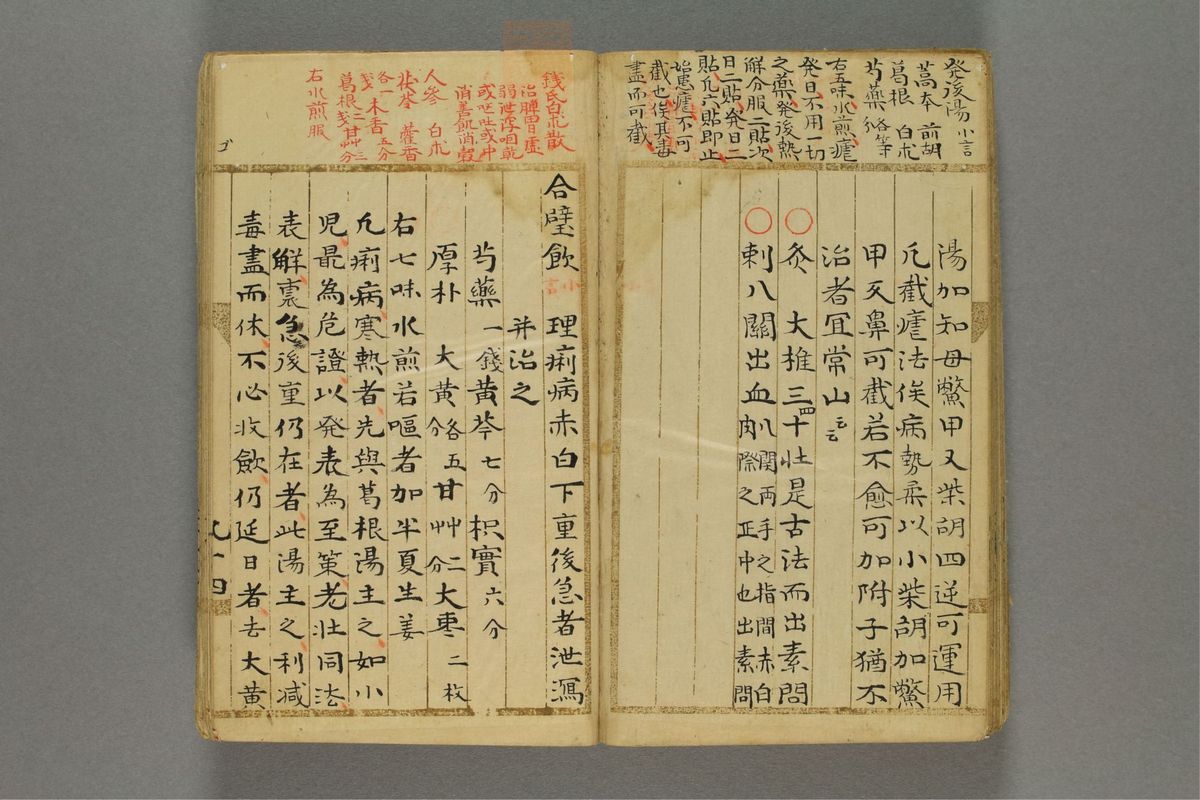 発後湯 小言
藁本 前胡
葛根 白朮
芍藥 各等分
右五味水煎瘧
発日不用一切
之藥発後熱
解分服二貼次
日二貼発日二
貼凢六貼即止
始患瘧不可
截也俟其毒
盡而可截
湯加知母鱉甲又柴胡四逆可運用
凢截瘧法俟病勢柔以小柴胡加鱉
甲天鼻可截若不愈可加附子猶不
治者冝常山云云
○灸 大椎三四十壮是古法而出素問
○刺八關出血八関両手之指間赤白肉際之正中也出素問
錢氏白朮散
治脾胃虚
弱泄瀉咽乾
或吐或
消善飢消穀
人參 白朮
茯苓 藿香
各一戔 木香五分
葛根二戔 甘艸三分
右水煎服
合璧飲 理痢病赤白下重後急者泄瀉
并治之
芍藥一錢 黄芩七分 枳實六分
厚朴 大黄各五分 甘艸二分 大棗二枚
右七味水煎若嘔者加半夏生姜
凢痢病寒熱者先與葛根湯主之如小
児最為危證以発表為至策老壮同法
表解裏急後重仍在者此湯主之利減
毒盡而休不必收歛仍延日者去大黄
九十四